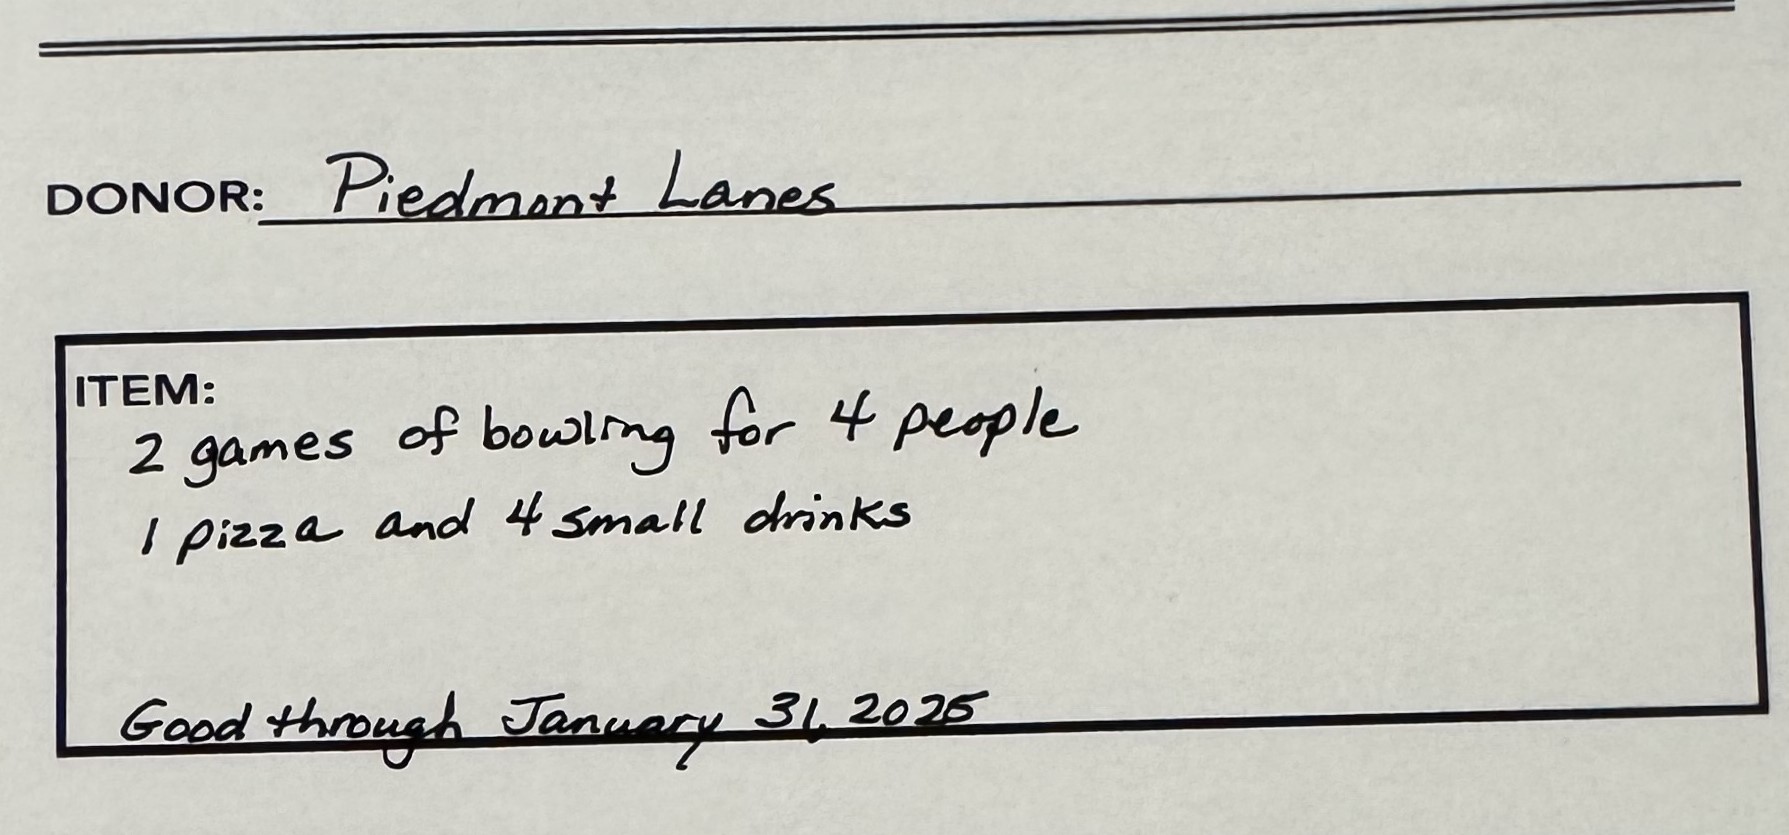 DONOR: Piedmont Lanes
ITEM:
2 games of bowling for 4 people
1 pizza and 4 small drinks
Good through January 31, 2025